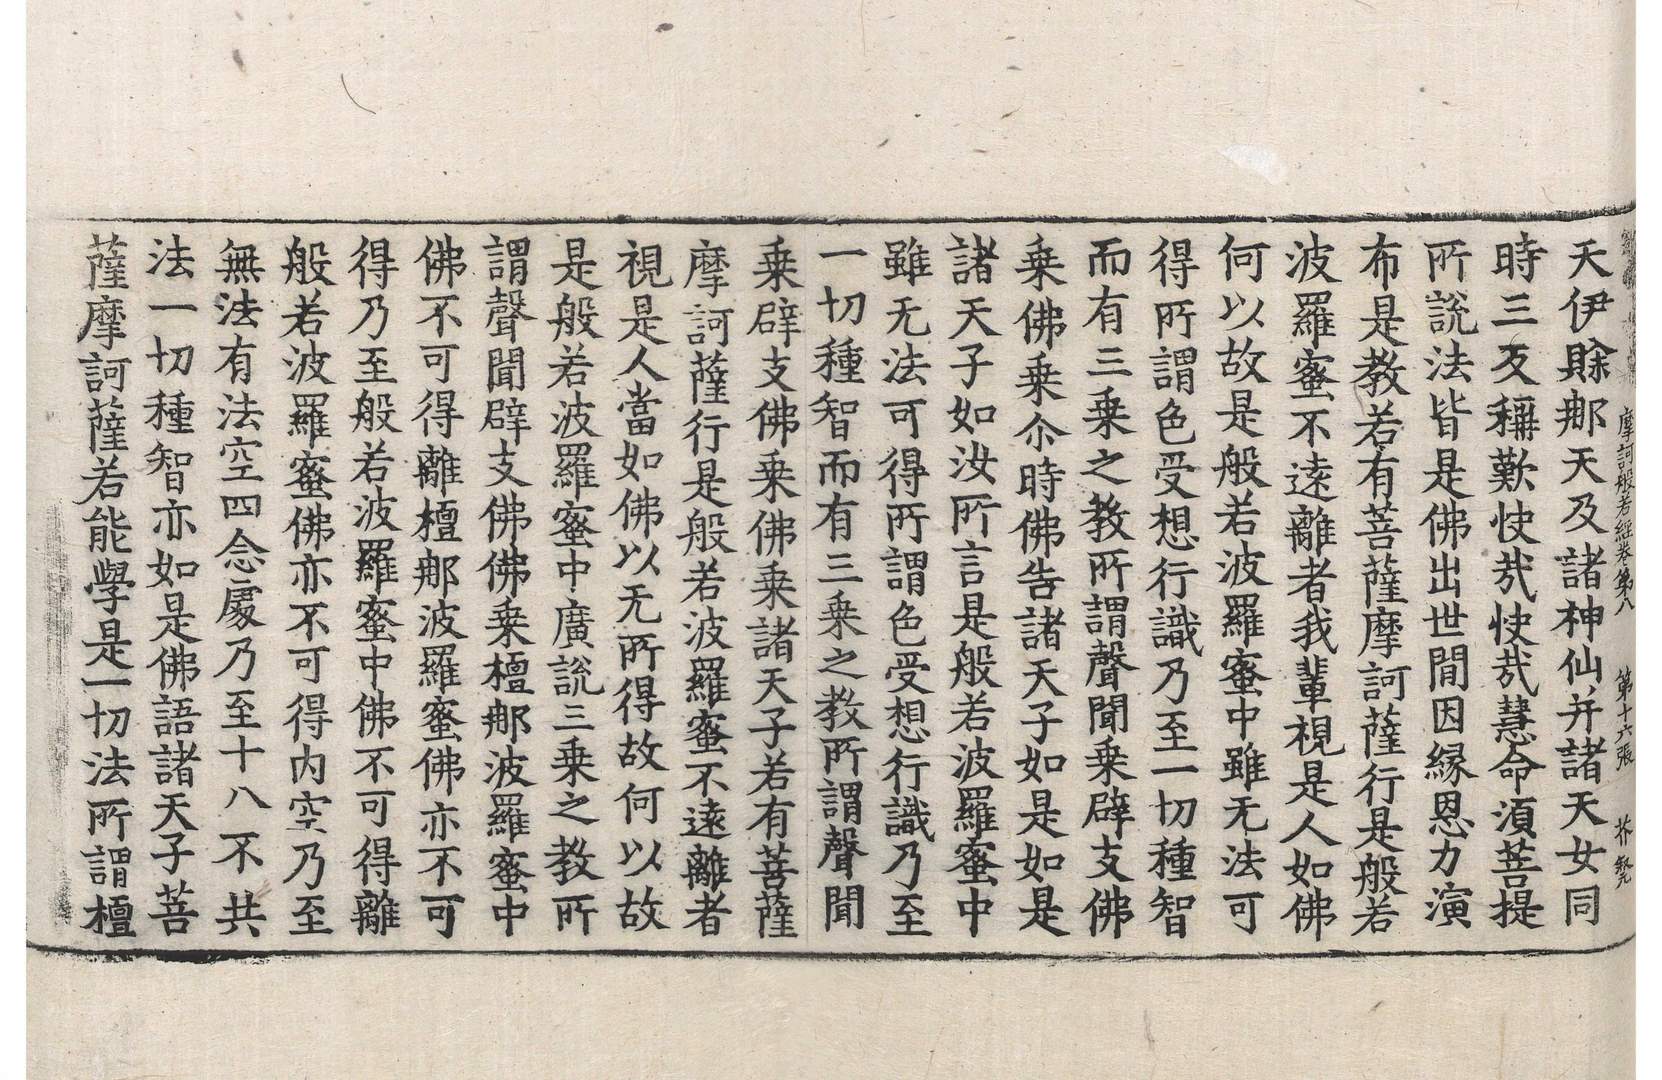 摩訶般若經卷第八　第十六張　芥
天伊賖那天及諸神仙并諸天女同
時三反稱歎快㢤快㢤慧命湏菩提
所說法皆是佛出世間因緣恩力演
布是教若有菩薩摩訶薩行是般若
波羅蜜不遠離者我輩視是人如佛
何以故是般若波羅蜜中雖无法可
得所謂色受想行識乃至一切種智
而有三乗之教所謂聲聞乗辟支佛
乗佛乗尒時佛告諸天子如是如是
諸天子如汝所言是般若波羅蜜中
雖无法可得所謂色受想行識乃至
一切種智而有三乗之教所謂聲聞
乗辟支佛乗佛乗諸天子若有菩薩
摩訶薩行是般若波羅蜜不遠離者
視是人當如佛以无所得故何以故
是般若波羅蜜中廣說三乗之教所
謂聲聞辟支佛佛乗檀那波羅蜜中
佛不可得離檀那波羅蜜佛亦不可
得乃至般若波羅蜜中佛不可得離
般若波羅蜜佛亦不可得内空乃至
無法有法空四念處乃至十八不共
法一切種智亦如是佛語諸天子菩
薩摩訶薩若能學是一切法所謂檀